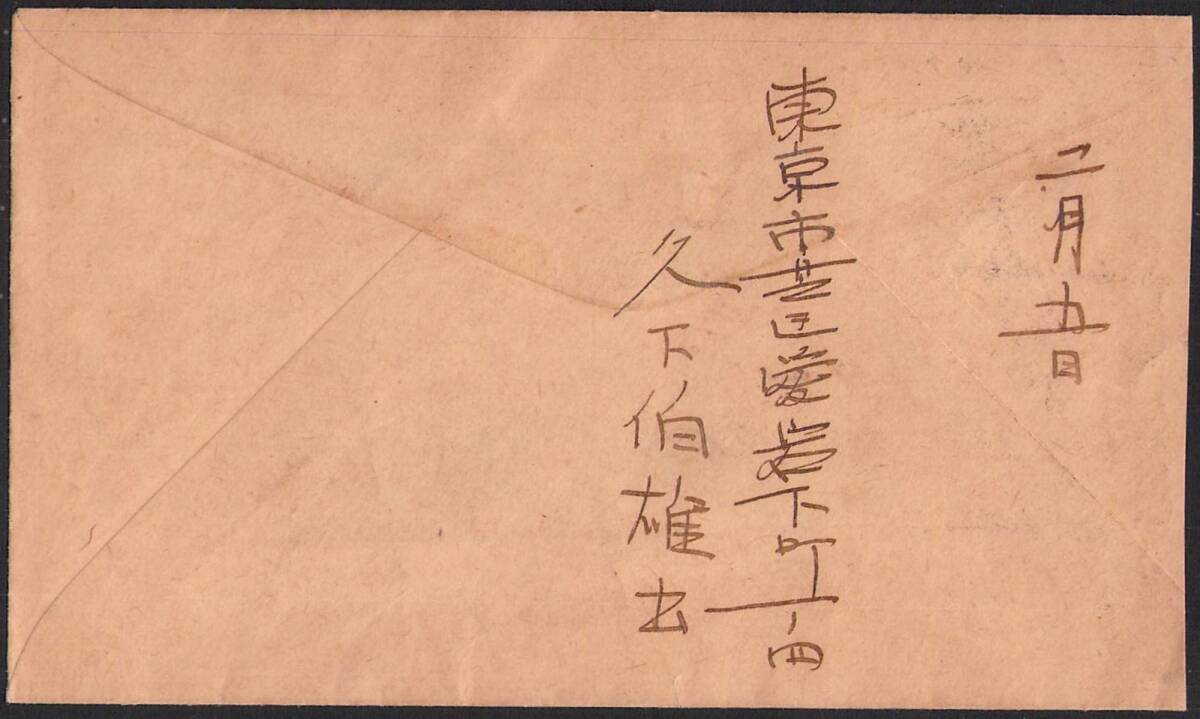 二月九日
東京市芝区愛宕下町一ノ四
久下伯雄出